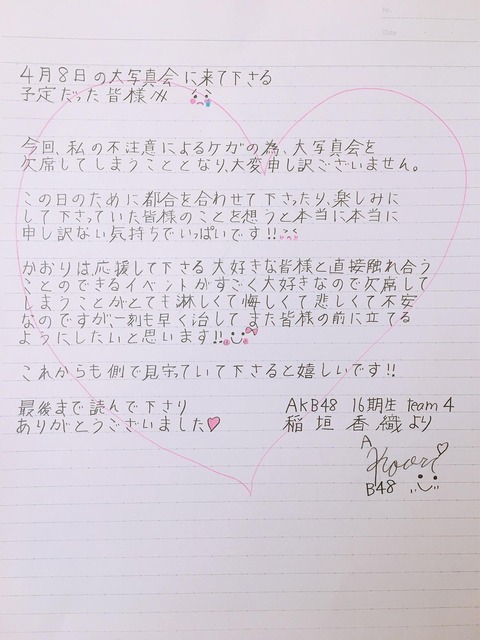 No.
Date
4月8日の大写真会に来て下さる
予定だった皆様へ
今回、私の不注意によるケガの為、大写真会を
欠席してしまうこととなり、大変申し訳ございません。
この日のために都合を合わせて下さったり、楽しみに
して下さっていた皆様のことを想うと本当に本当に
申し訳ない気持ちでいっぱいです!!
かおりは応援して下さる大好きな皆様と直接触れ合う
ことのできるイベントがすごく大好きなので欠席して
しまうことがとても淋しくて悔しくて悲しくて不安
なのですが、一刻も早く治してまた皆様の前に立てる
ようにしたいと思います!!
これからも側で見守っていて下さると嬉しいです!!
最後まで読んで下さり
ありがとうございました♡
AKB48 16期生 team4
稲垣香織より
A
Kaori
B48